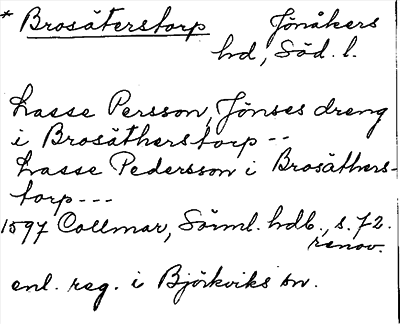 * Brosäterstorp Jönåkers
hd, Söd. l.
Lasse Persson, Jönses dreng
i Brosätherstorp --
Lasse Pedersson i Brosäthers-
torp ---
1597 Collmar, Sörml. hdb., s. 72.
renov.
enl. reg. i Björkviks sn.